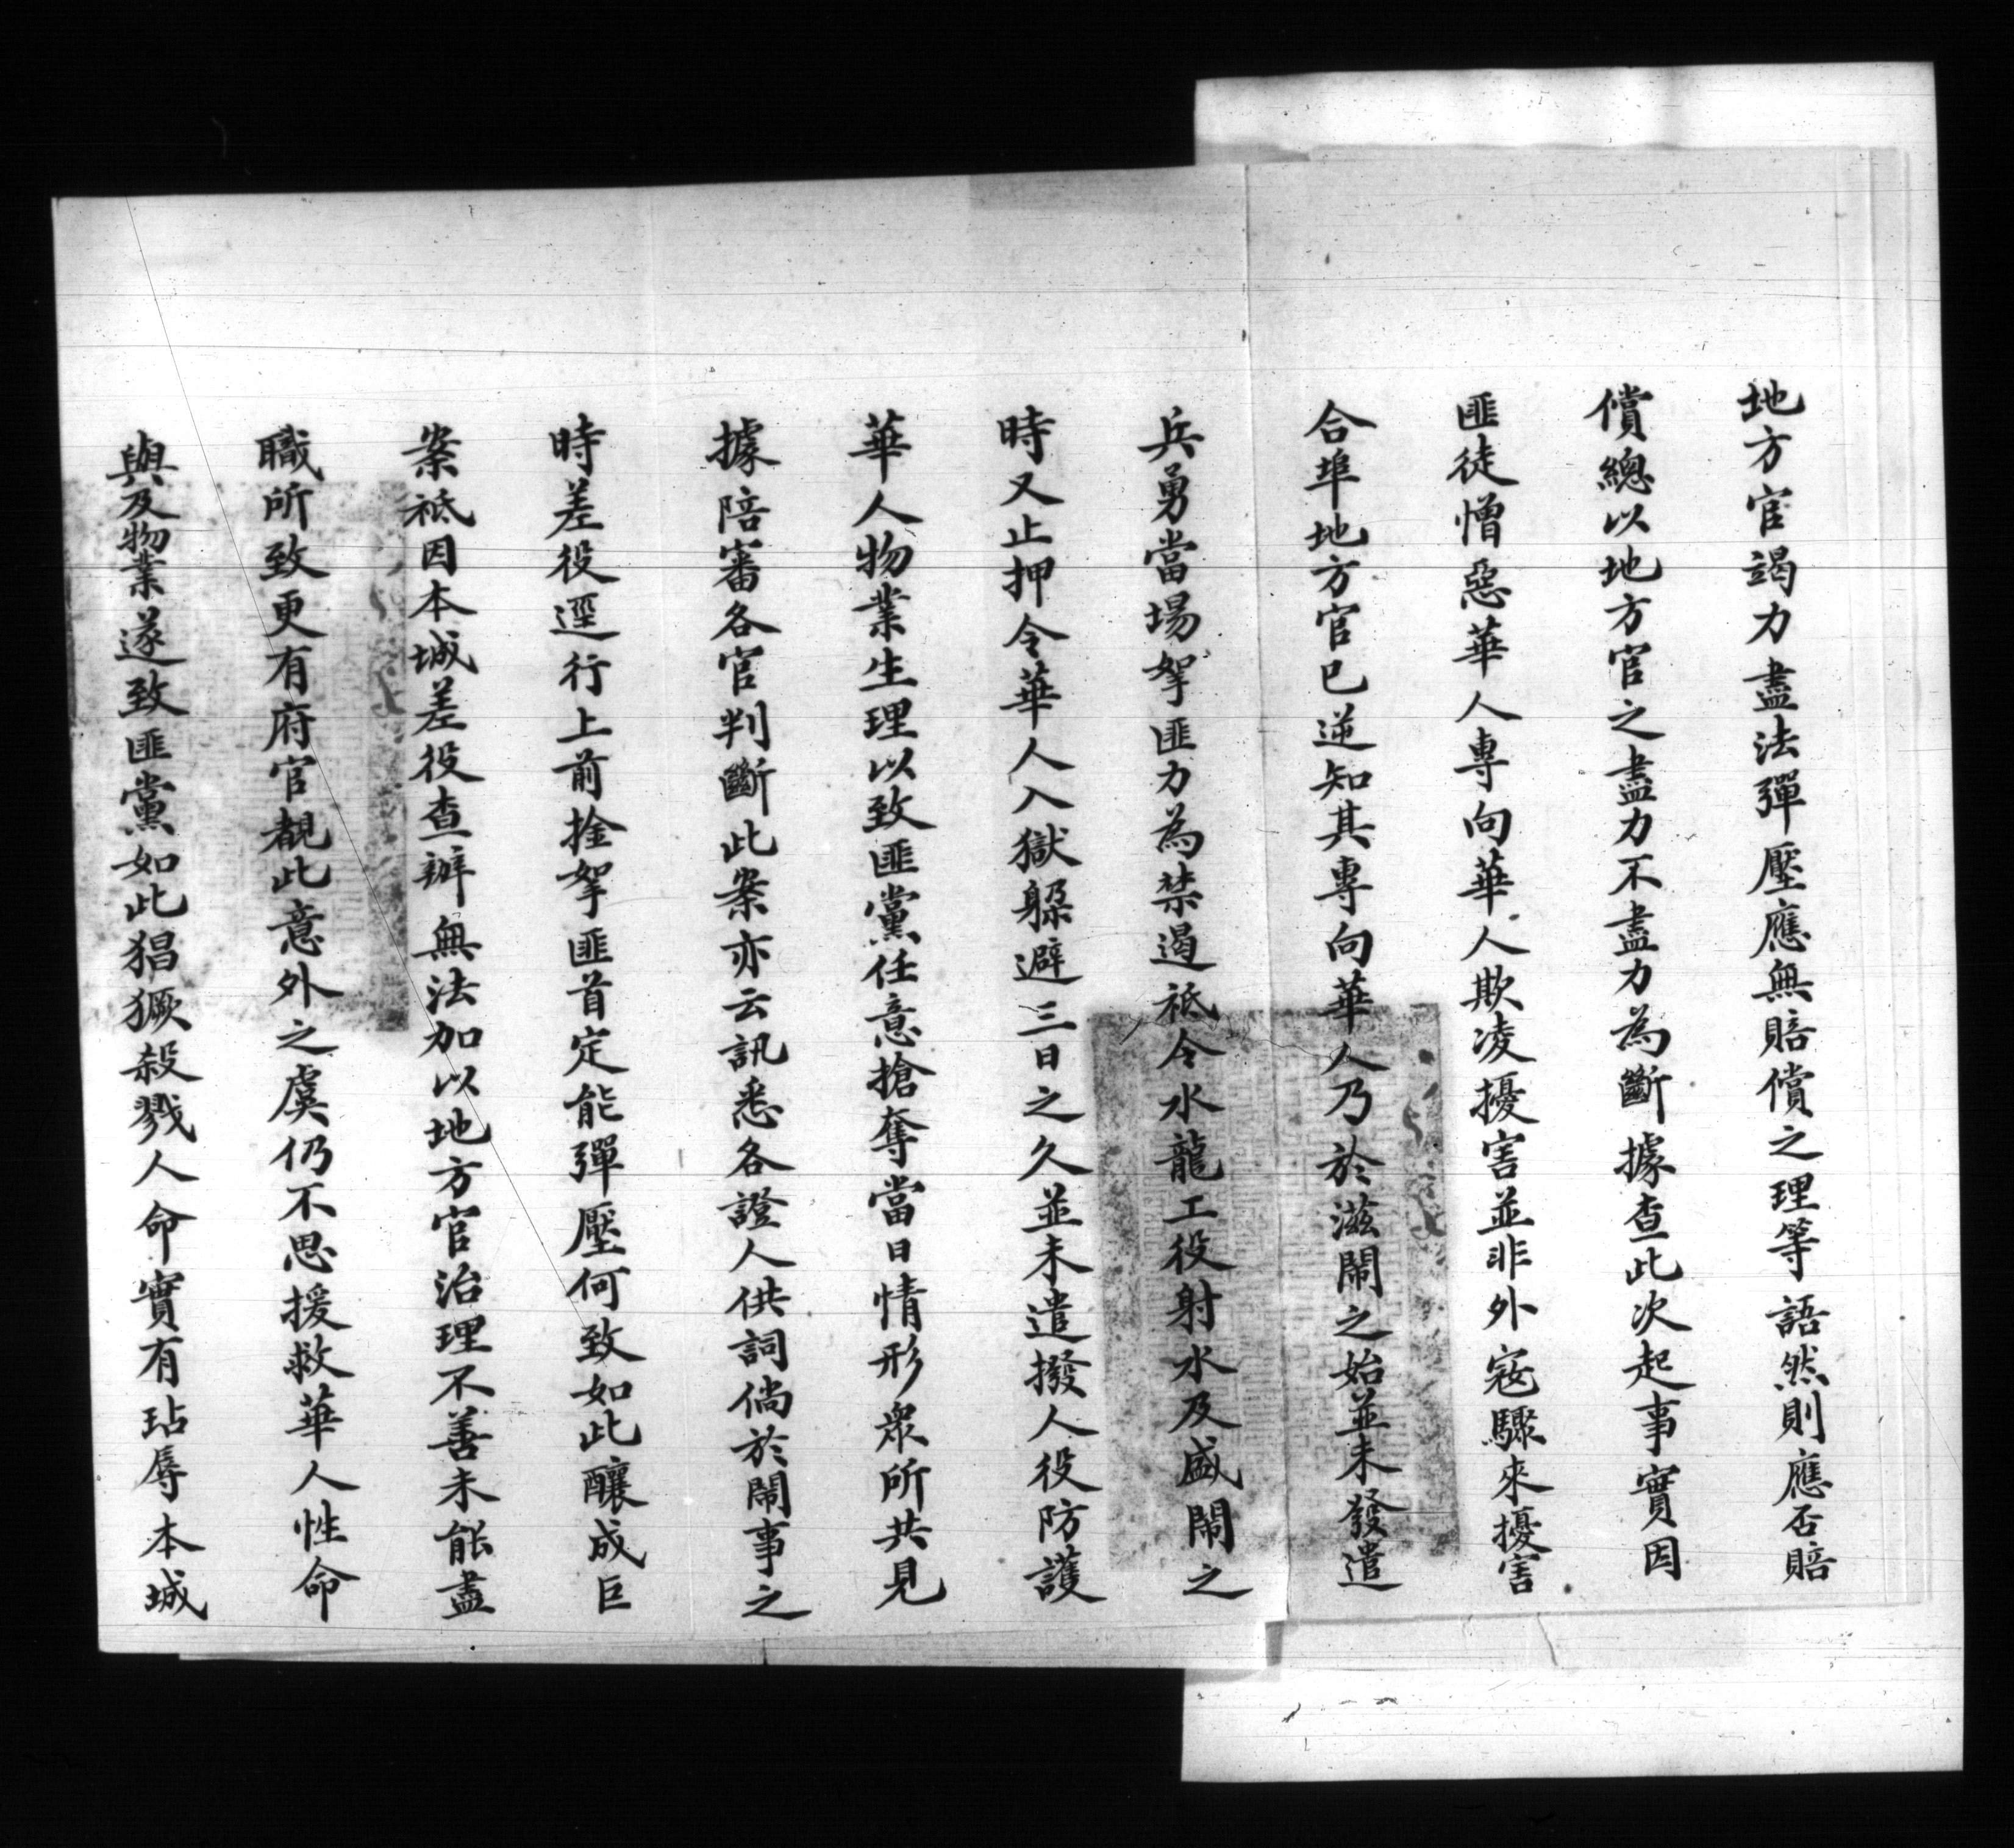 地方官竭力盡法彈壓應無賠償之理等語然則應否賠
償總以地方官之盡力不盡力為斷據查此次起事實因
匪徒憎惡華人專向華人欺凌擾害並非外寇驟來擾害
合埠地方官已逆知其專向華人乃於滋鬧之始並未發遣
兵勇當場拏匪力為禁遏祗令水龍工役射水及盛鬧之
時又止押令華人入獄躲避三日之久並未遣撥人役防護
華人物業生理以致匪黨任意搶奪當日情形眾所共見
據陪審各官判斷此案亦云訊悉各證人供詞倘於鬧事之
時差役逕行上前拴拏匪首定能彈壓何致如此釀成巨
案祗因本城差役查辦無法加以地方官治理不善未能盡
職所致更有府官覩此意外之虞仍不思援救華人性命
與及物業遂致匪黨如此猖獗殺戮人命實有玷辱本城